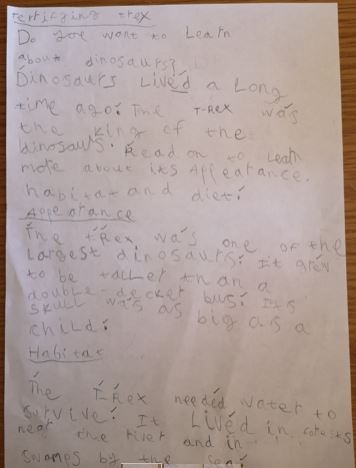 terrifying trex
Do you want to Learn
about dinosaurs?
Dinosaurs Lived a Long
time ago. The T-Rex was
the king of the
dinosaurs. Read on to Learn
more about its Appearance.
habitat and diet.
Appearance
The tRex was one of the
Largest dinosaurs. It grew
to be taller than a
double-decker bus. Its
skull was as big as a
child.
Habitat
The TRex needed water to
survive. It Lived in forests
near the river and in
swamps by the sea.